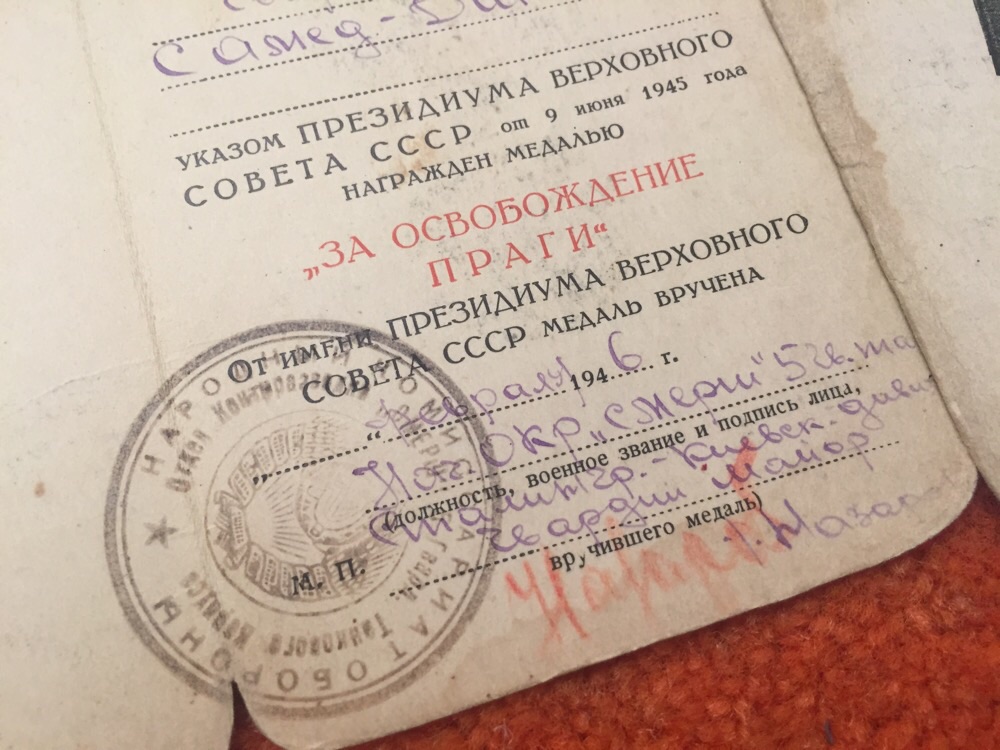 Самед-
указом ПРЕЗИДИУМА ВЕРХОВНОГО
СОВЕТА СССР от 9 июня 1945 года
НАГРАЖДЕН МЕДАЛЬЮ
„ЗА ОСВОБОЖДЕНИЕ
ПРАГИ“
От имени ПРЕЗИДИУМА ВЕРХОВНОГО
СОВЕТА СССР МЕДАЛЬ ВРУЧЕНА
„ “ февраля 1946 г.
Нач ОКР „Смерш" 5 гв.
(должность, военное звание и подпись лица,
гвардии майор
вручившего медаль)
М. П.
НАРОДНЫЙ КОМИССАРИАТ ОБОРОНЫ
Отдел Контрразведки
Танкового Корпуса